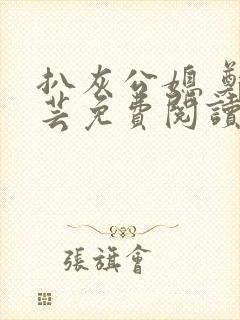 扒灰公媳 鄭
芸免費閱讀
張旗會